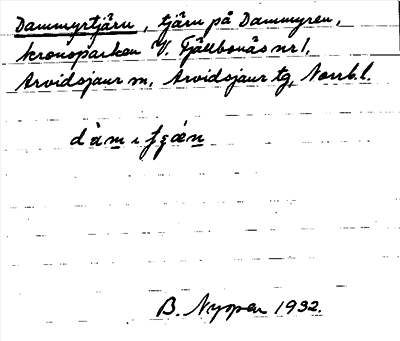 Dammyrtjärn, tjärn på Dammyren,
kronoparken V. Fjällbonäs nr 1,
Arvidsjaur sn, Arvidsjaur tg, Norrb. l.
B. Nyman 1932.